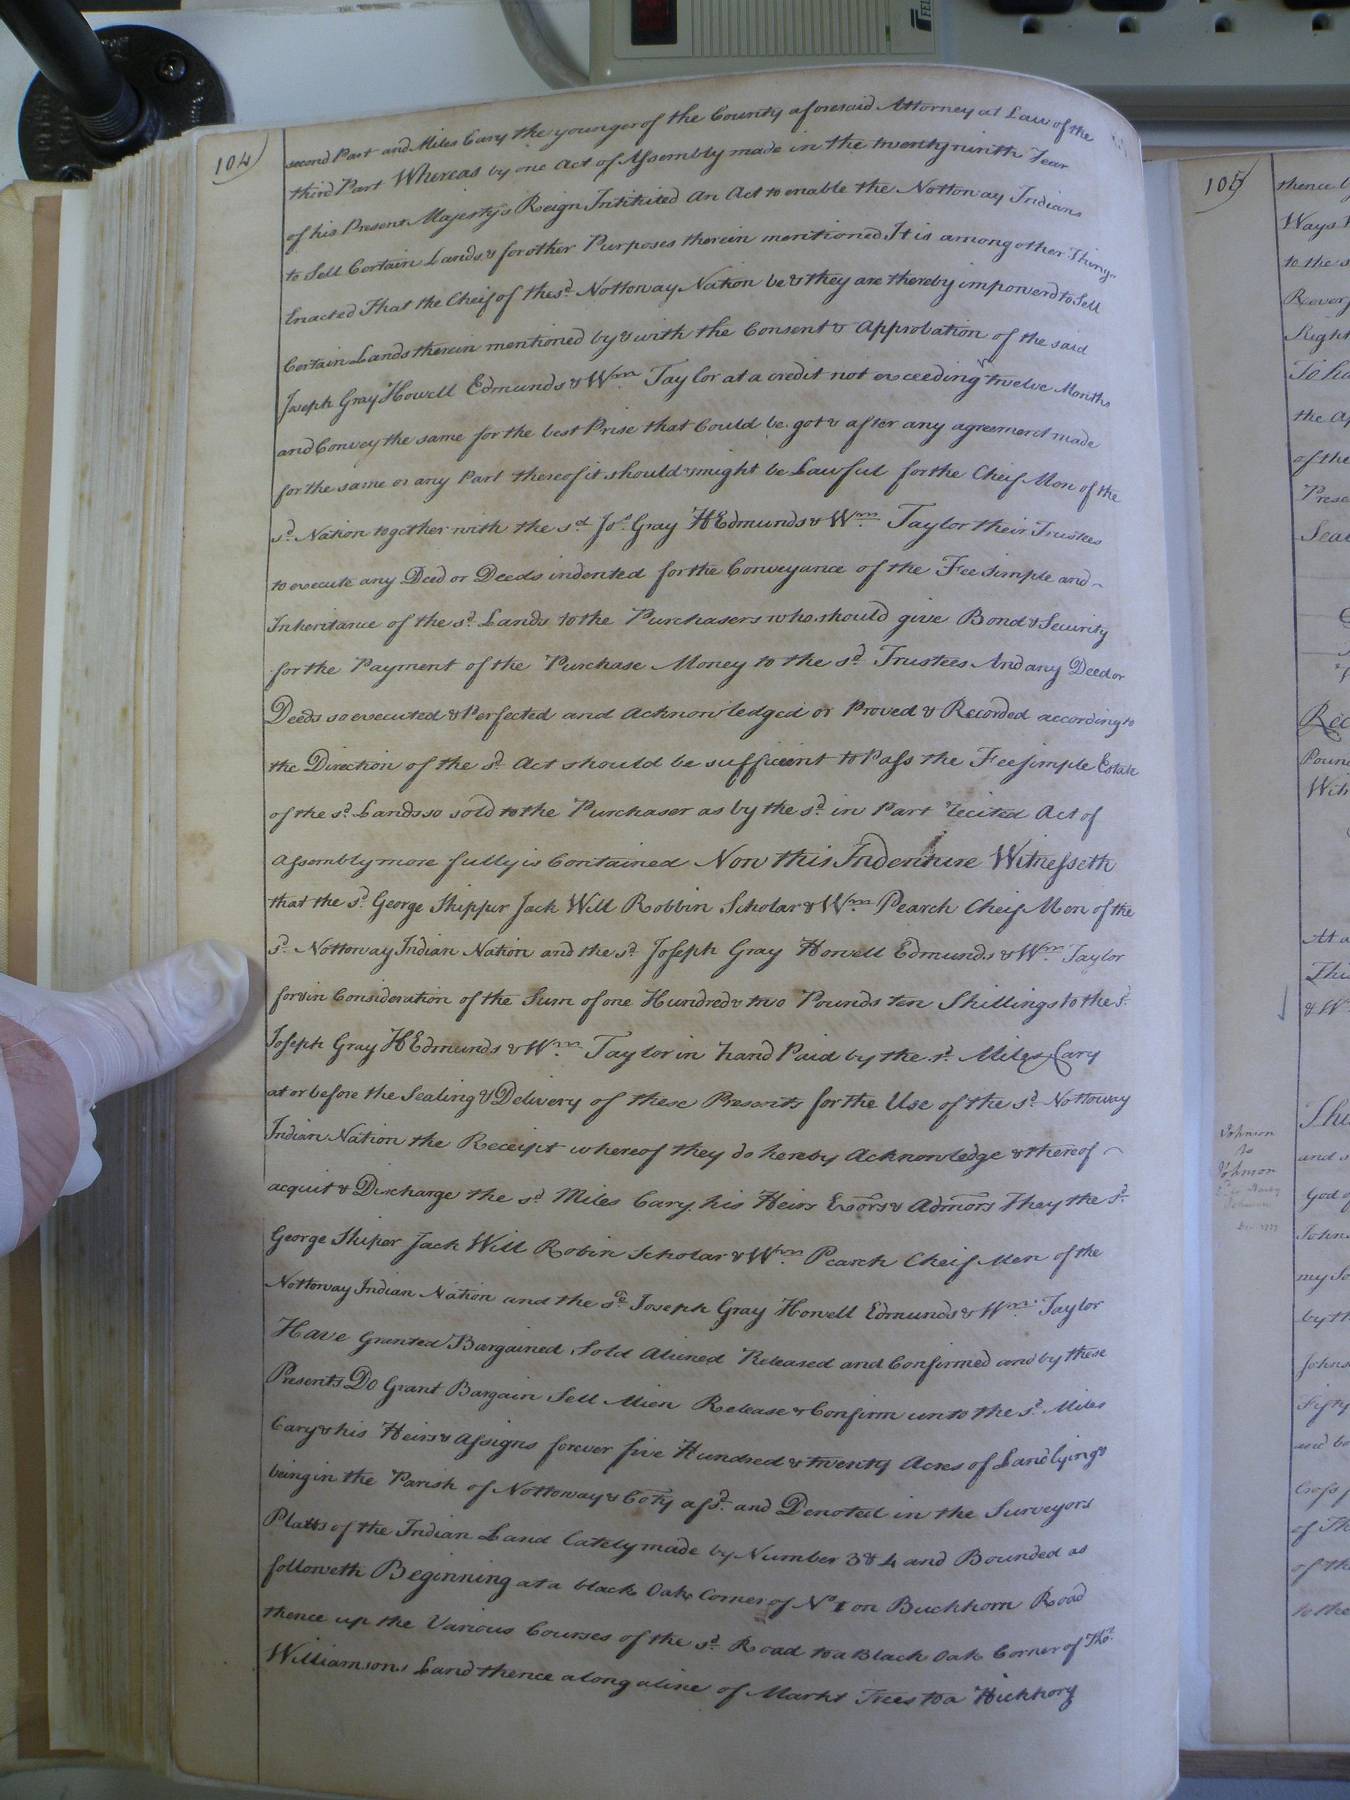 104
second Part and Miles Cary the younger of the County aforesaid Attorney at Law of the
third Part Whereas by one Act of Assembly made in the twenty ninth Year
of his Present Majesty's Reign Intitited An Act to enable the Nottoway Indians
to Sell Certain Lands & for other Purposes therein mentioned It is among other Things
Enacted That the Cheif of the sd. Nottoway Nation be & they are thereby impowerd to Sell
Certain Lands therein mentioned by & with the Consent & Approbation of the said
Joseph Gray Howell Edmunds & Wm. Taylor at a credit not exceeding twelve Months
and Convey the same for the best Prise that Could be got & after any agreement made
for the same or any Part thereof it should & might be Lawful for the Cheif Men of the
sd. Nation together with the sd. Jos. Gray H Edmunds & Wm. Taylor their Trustees
to execute any Deed or Deeds indented for the Conveyance of the Fee Simple and
Inheritance of the sd. Lands to the Purchasers who should give Bond & Security
for the Payment of the Purchase Money to the sd. Trustees And any Deed or
Deeds so executed & Perfected and Acknowledged or Proved & Recorded according to
the Direction of the sd. Act should be sufficient to Pass the Fee simple Estate
of the sd. Lands so sold to the Purchaser as by the sd. in Part recited Act of
Assembly more fully is Contained Now this Indenture Witnesseth
that the sd. George Skipper Jack Will Robbin Scholar & Wm. Pearch Cheif Men of the
sd. Nottoway Indian Nation and the sd. Joseph Gray Howell Edmunds & Wm. Taylor
for & in Consideration of the Sum of one Hundred & two Pounds ten Shillings to the sd.
Joseph Gray H Edmunds & Wm. Taylor in hand Paid by the sd. Miles Cary
at or before the Sealing & Delivery of these Presents for the Use of the sd. Nottoway
Indian Nation the Receipt whereof they do hereby Acknowledge & thereof
acquit & Discharge the sd. Miles Cary his Heirs Exors & Admors They the sd.
George Skiper Jack Will Robin Scholar & Wm. Pearch Cheif Men of the
Nottoway Indian Nation and the sd. Joseph Gray Howell Edmunds & Wm. Taylor
Have Granted Bargained Sold Aliened Released and Confirmed and by these
Presents Do Grant Bargain Sell Alien Release & Confirm unto the sd. Miles
Cary & his Heirs & Assigns forever five Hundred & twenty Acres of Land lying &
being in the Parish of Nottoway & Coty afsd. and Denoted in the Surveyors
Platts of the Indian Land lately made by Number 3 & 4 and Bounded as
followeth Beginning at a black Oak Corner of No. 1 on Buckhorn Road
thence up the Various Courses of the sd. Road to a Black Oak Corner of Thos.
Williamsons Land thence along a line of Markt Trees to a Hickhory
105
thence
Ways
to the
Right
the
of the
Johnson
to
Johnson
and
God
by th
of
of the
to the